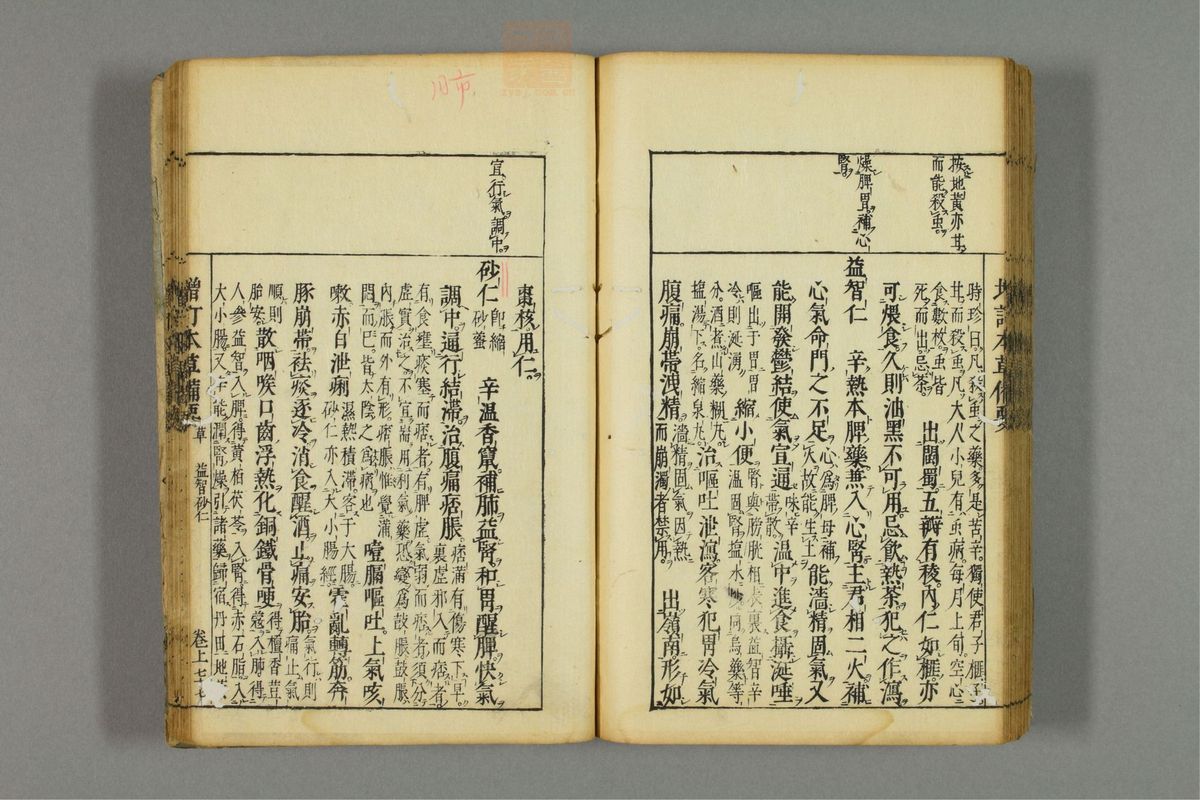 按地黃亦甘
而能殺虫
燥脾胃補心
腎
時珍曰凡殺虫之藥多是苦辛獨使君子榧子
甘而殺虫凡大人小兒有虫病每月上旬空心
食數枚虫皆
死而出忌茶
出閩蜀五瓣有稜內仁如榧亦
可煨食久則油黑不可用忌飲熱茶犯之作瀉
益智仁 辛熱本脾藥兼入心腎主君相二火補
心氣命門之不足 心為脾母補
火故能生土 能濇精固氣又
能開發鬱結使氣宣通 味辛
能散 溫中進食攝涎唾
嘔出于胃胃
冷則涎湧 縮小便 腎與膀胱相表裏益智辛
溫固腎鹽水 同烏藥等
分酒煮山藥糊丸
鹽湯下名縮泉丸 治嘔吐泄瀉客寒犯胃冷氣
腹痛崩帶洩精 濇精固氣因熱
而崩濁者禁用 出嶺南形如
宜行氣調中
棗核用仁
砂仁 即縮
砂蔤 辛溫香竄補肺益腎和胃醒脾快氣
調中通行結滯治腹痛痞脹 痞滿有傷寒下早
裏虛邪入而痞者
有食壅痰塞而痞者有脾虛氣弱而痞者須分
虛實治之不宜耑用利氣藥恐變為鼓脹鼓脹
內脹而外有形痞脹惟覺滿
悶而已皆太陰之為病也 噎膈嘔吐上氣咳
嗽赤白泄痢 濕熱積滯客于大腸
砂仁亦入大小腸經 霍亂轉筋奔
豚崩帶祛痰逐冷消食醒酒止痛安胎 氣行則
痛止氣
順則
胎安 散咽喉口齒浮熱化銅鐵骨哽 得檀香荳
蔻入肺得
人參益智入脾得黃柏茯苓入腎得赤石脂入
大小腸又 能潤腎燥引諸藥歸宿丹田地
增訂本草備要
草
益智砂仁
卷上
川市